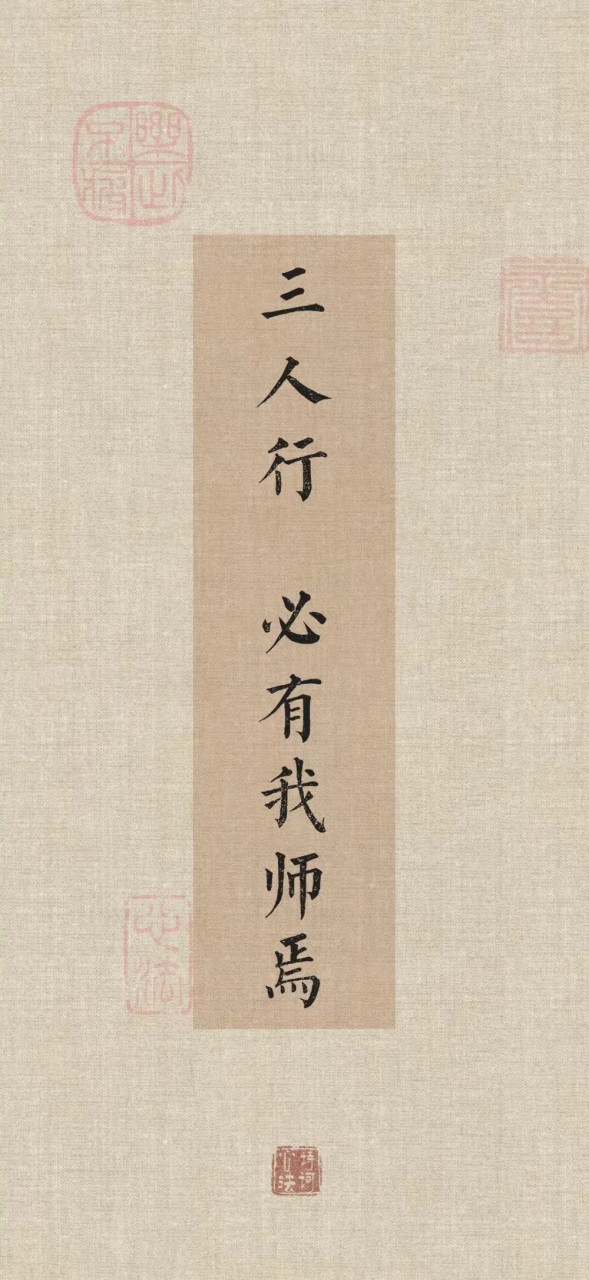 三人行 必有我师焉
心法